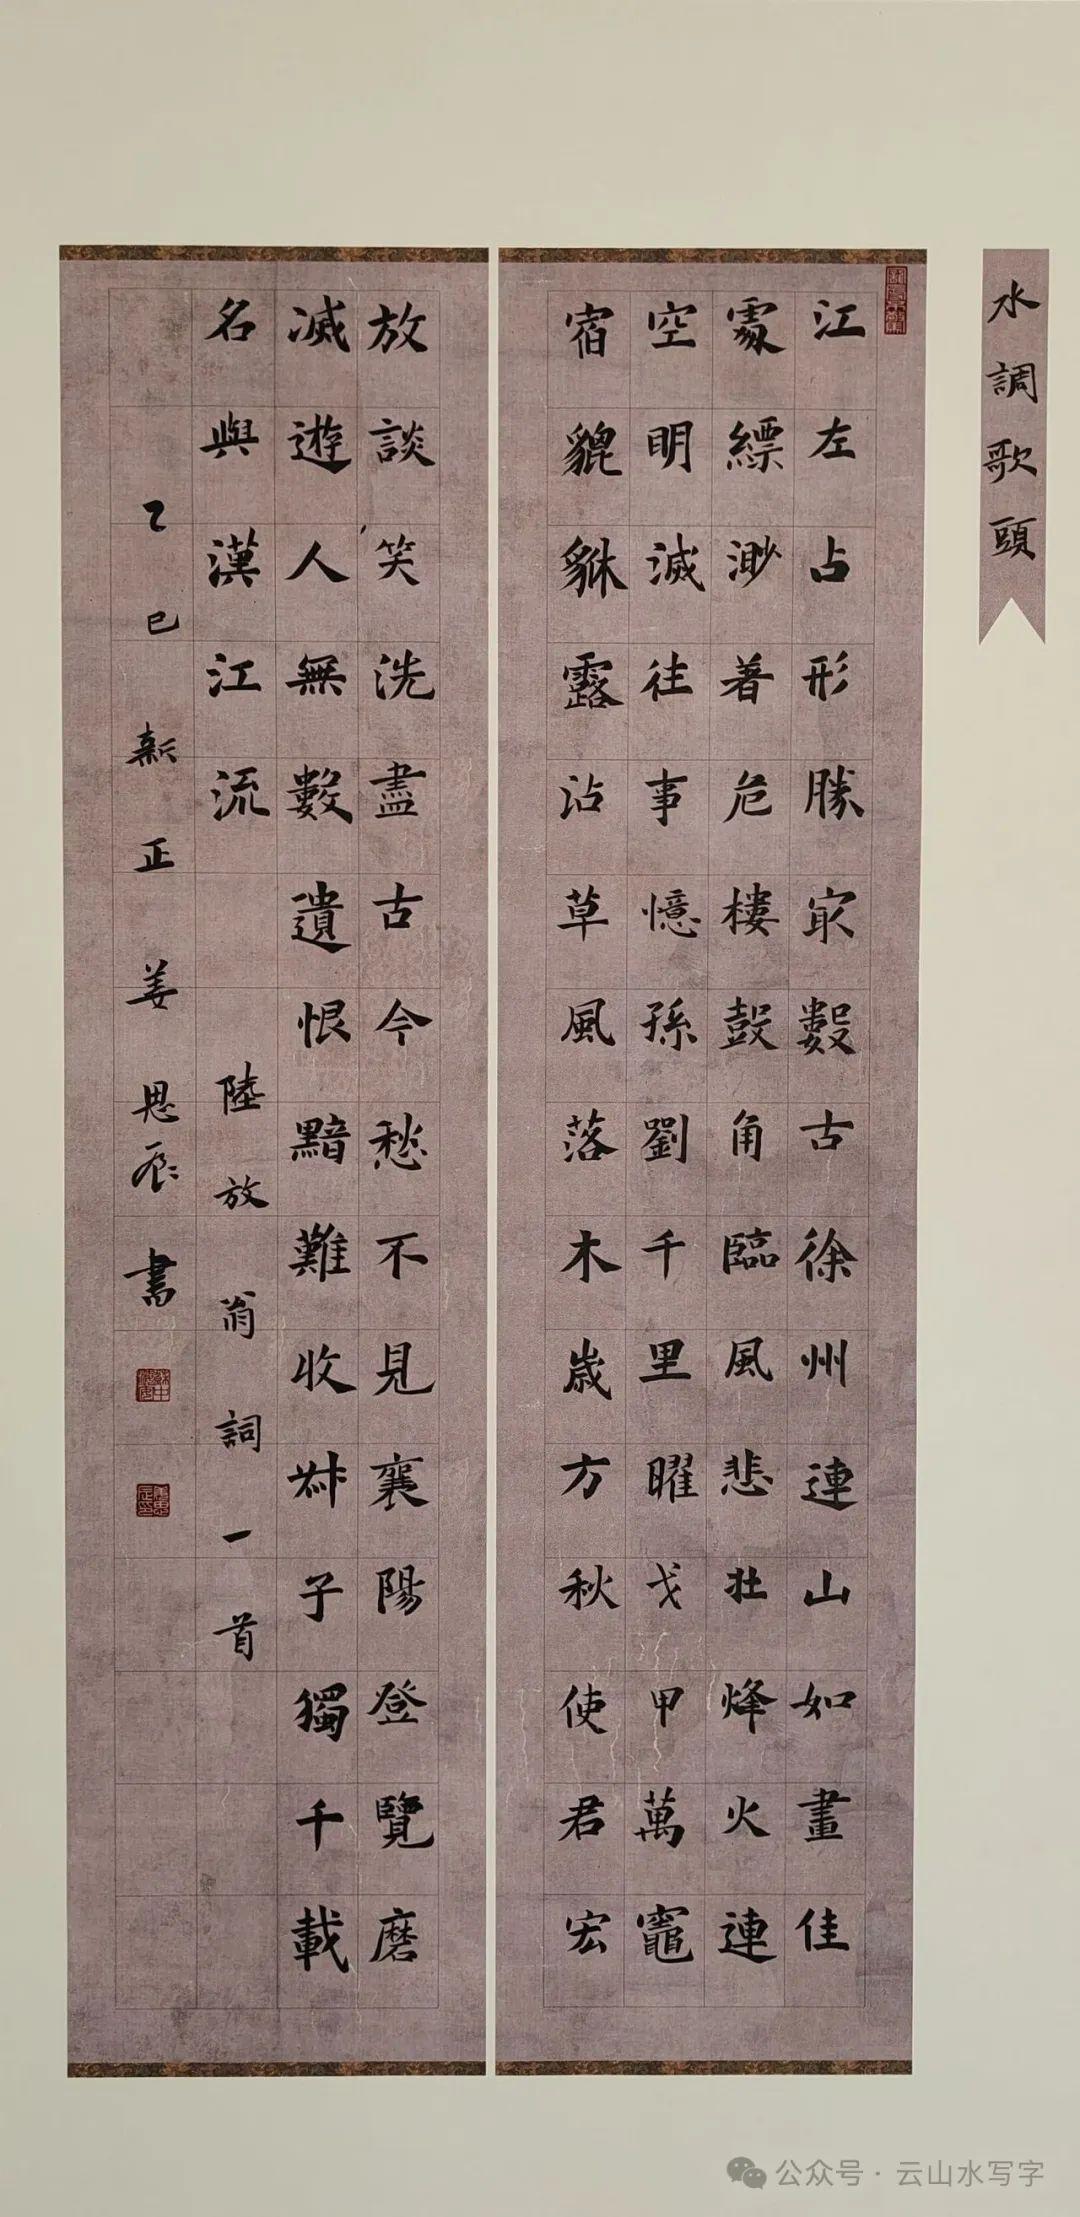 水調歌頭
江左占形勝冣數古徐州連山如畫佳
處縹渺著危樓鼓角臨風悲壯烽火連
空明滅往事憶孫劉千里曜戈甲萬竈
宿貔貅露沾草風落木歲方秋使君宏
放談笑洗盡古今愁不見襄陽登覽磨
滅遊人無數遺恨黯難收叔子獨千載
名與漢江流 陸放翁詞一首
乙巳新正姜思辰書
公众号·云山水写字